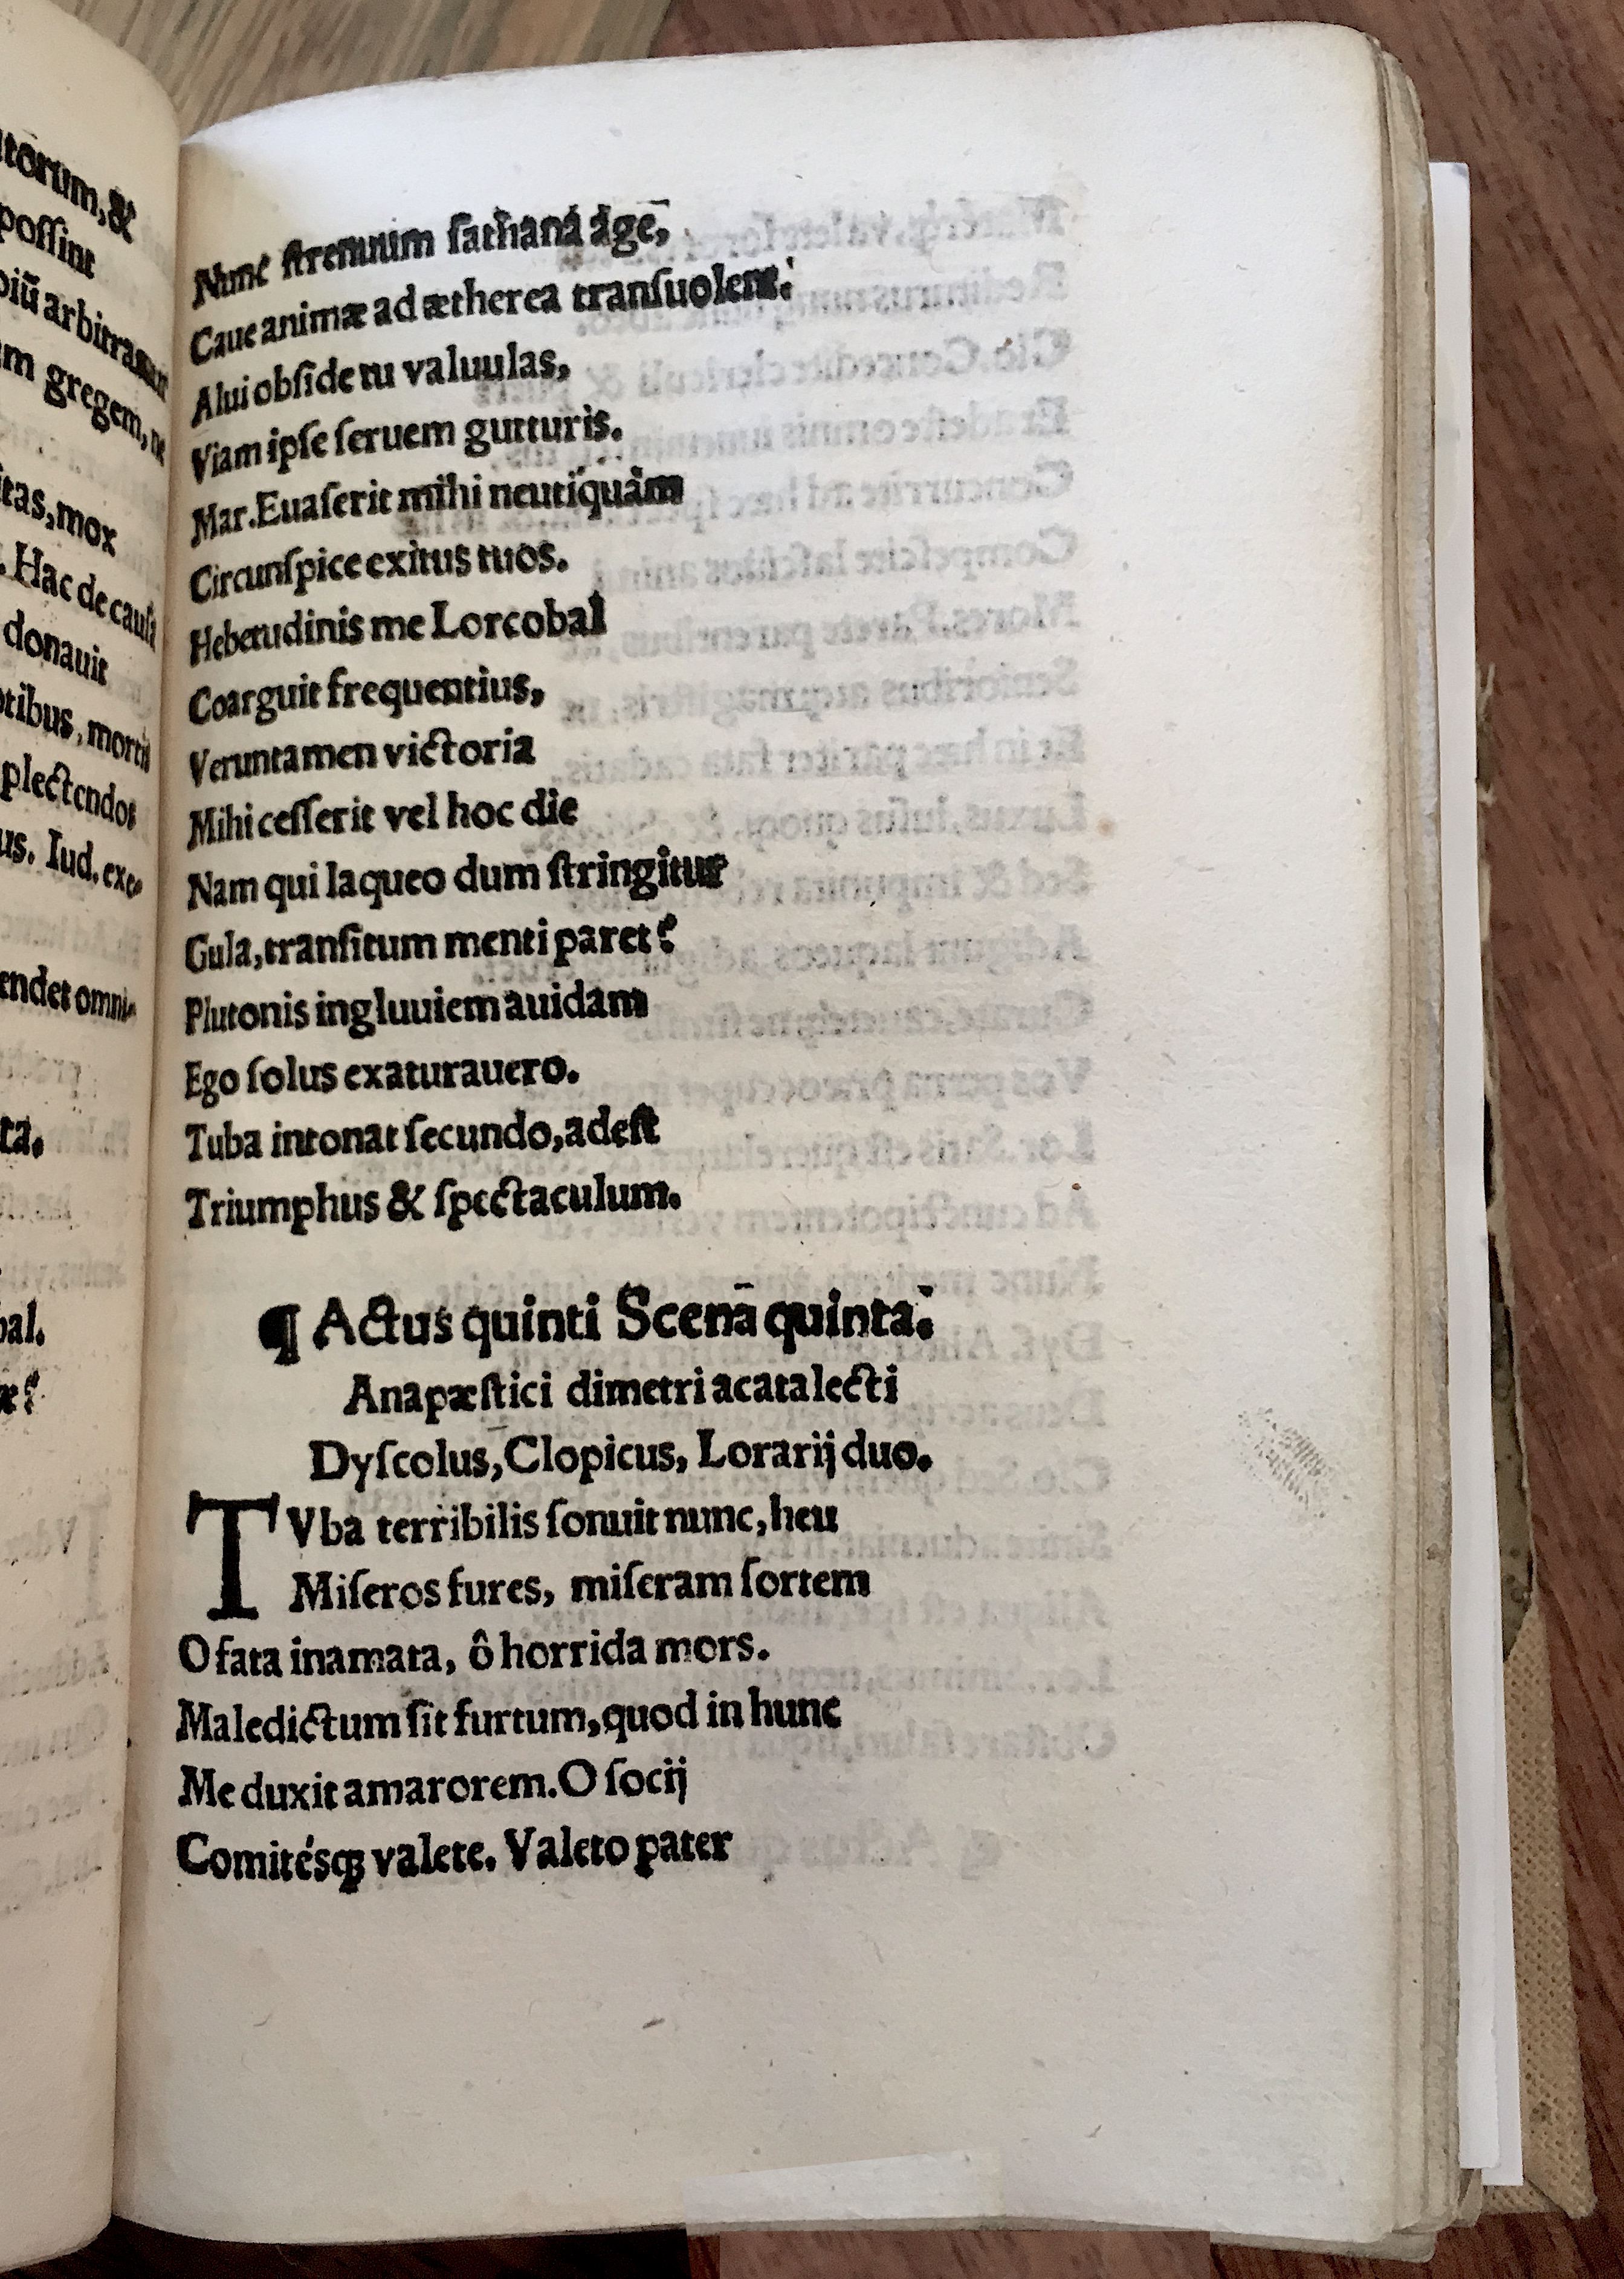 torum, &
possint
piū arbitramur
m gregem, ne
itas, mox
. Hac de causa
donauit
otibus, mortis
plectendos
us. Iud. exe-
endet omni-
ta.
bal.
æ?
Nunc strenuum sathanā age,
Caue animæ ad ætherea transuolent.
Alui obside tu valuulas,
Viam ipse seruem gutturis.
Mar. Euaserit mihi neutiquàm
Circunspice exitus tuos.
Hebetudinis me Lorcobal
Coarguit frequentius,
Veruntamen victoria
Mihi cesserit vel hoc die
Nam qui laqueo dum stringitur
Gula, transitum menti paret?
Plutonis ingluuiem auidam
Ego solus exaturauero.
Tuba intonat secundo, adest
Triumphus & spectaculum.
¶ Actus quinti Scena quinta.
Anapæstici dimetri acatalecti
Dyscolus, Clopicus, Lorarij duo.
TVba terribilis sonuit nunc, heu
Miseros fures, miseram sortem
O fata inamata, ô horrida mors.
Maledictum sit furtum, quod in hunc
Me duxit amarorem. O socij
Comitésqꝫ valete. Valeto pater